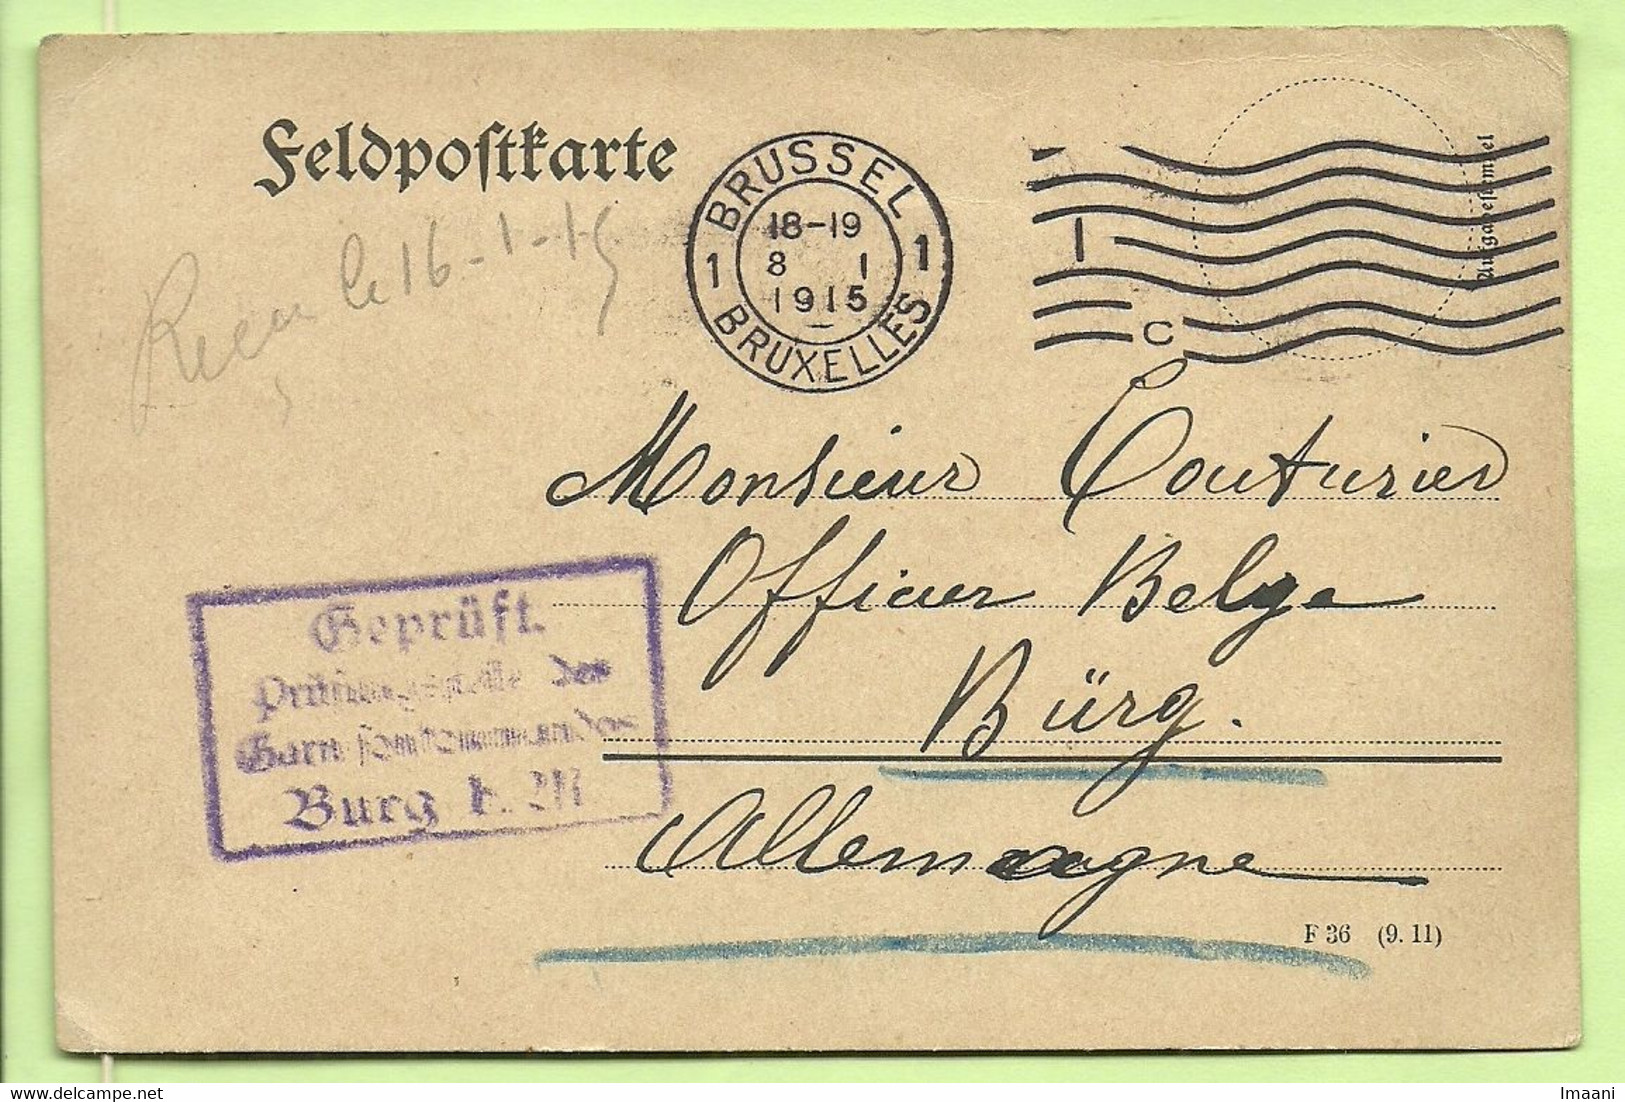 Feldpostkarte
BRUSSEL
18-19
8 1
1915
1 1
BRUXELLES
1
C
Ausgabestempel
Recu le 16-1-15
Monsieur Couturier
Officier Belge
Bürg.
Allemagne
Geprüft.
Prüfungsstelle des
Garnisonkommandos
Burg b. M
F 36 (9. 11)
Imaani